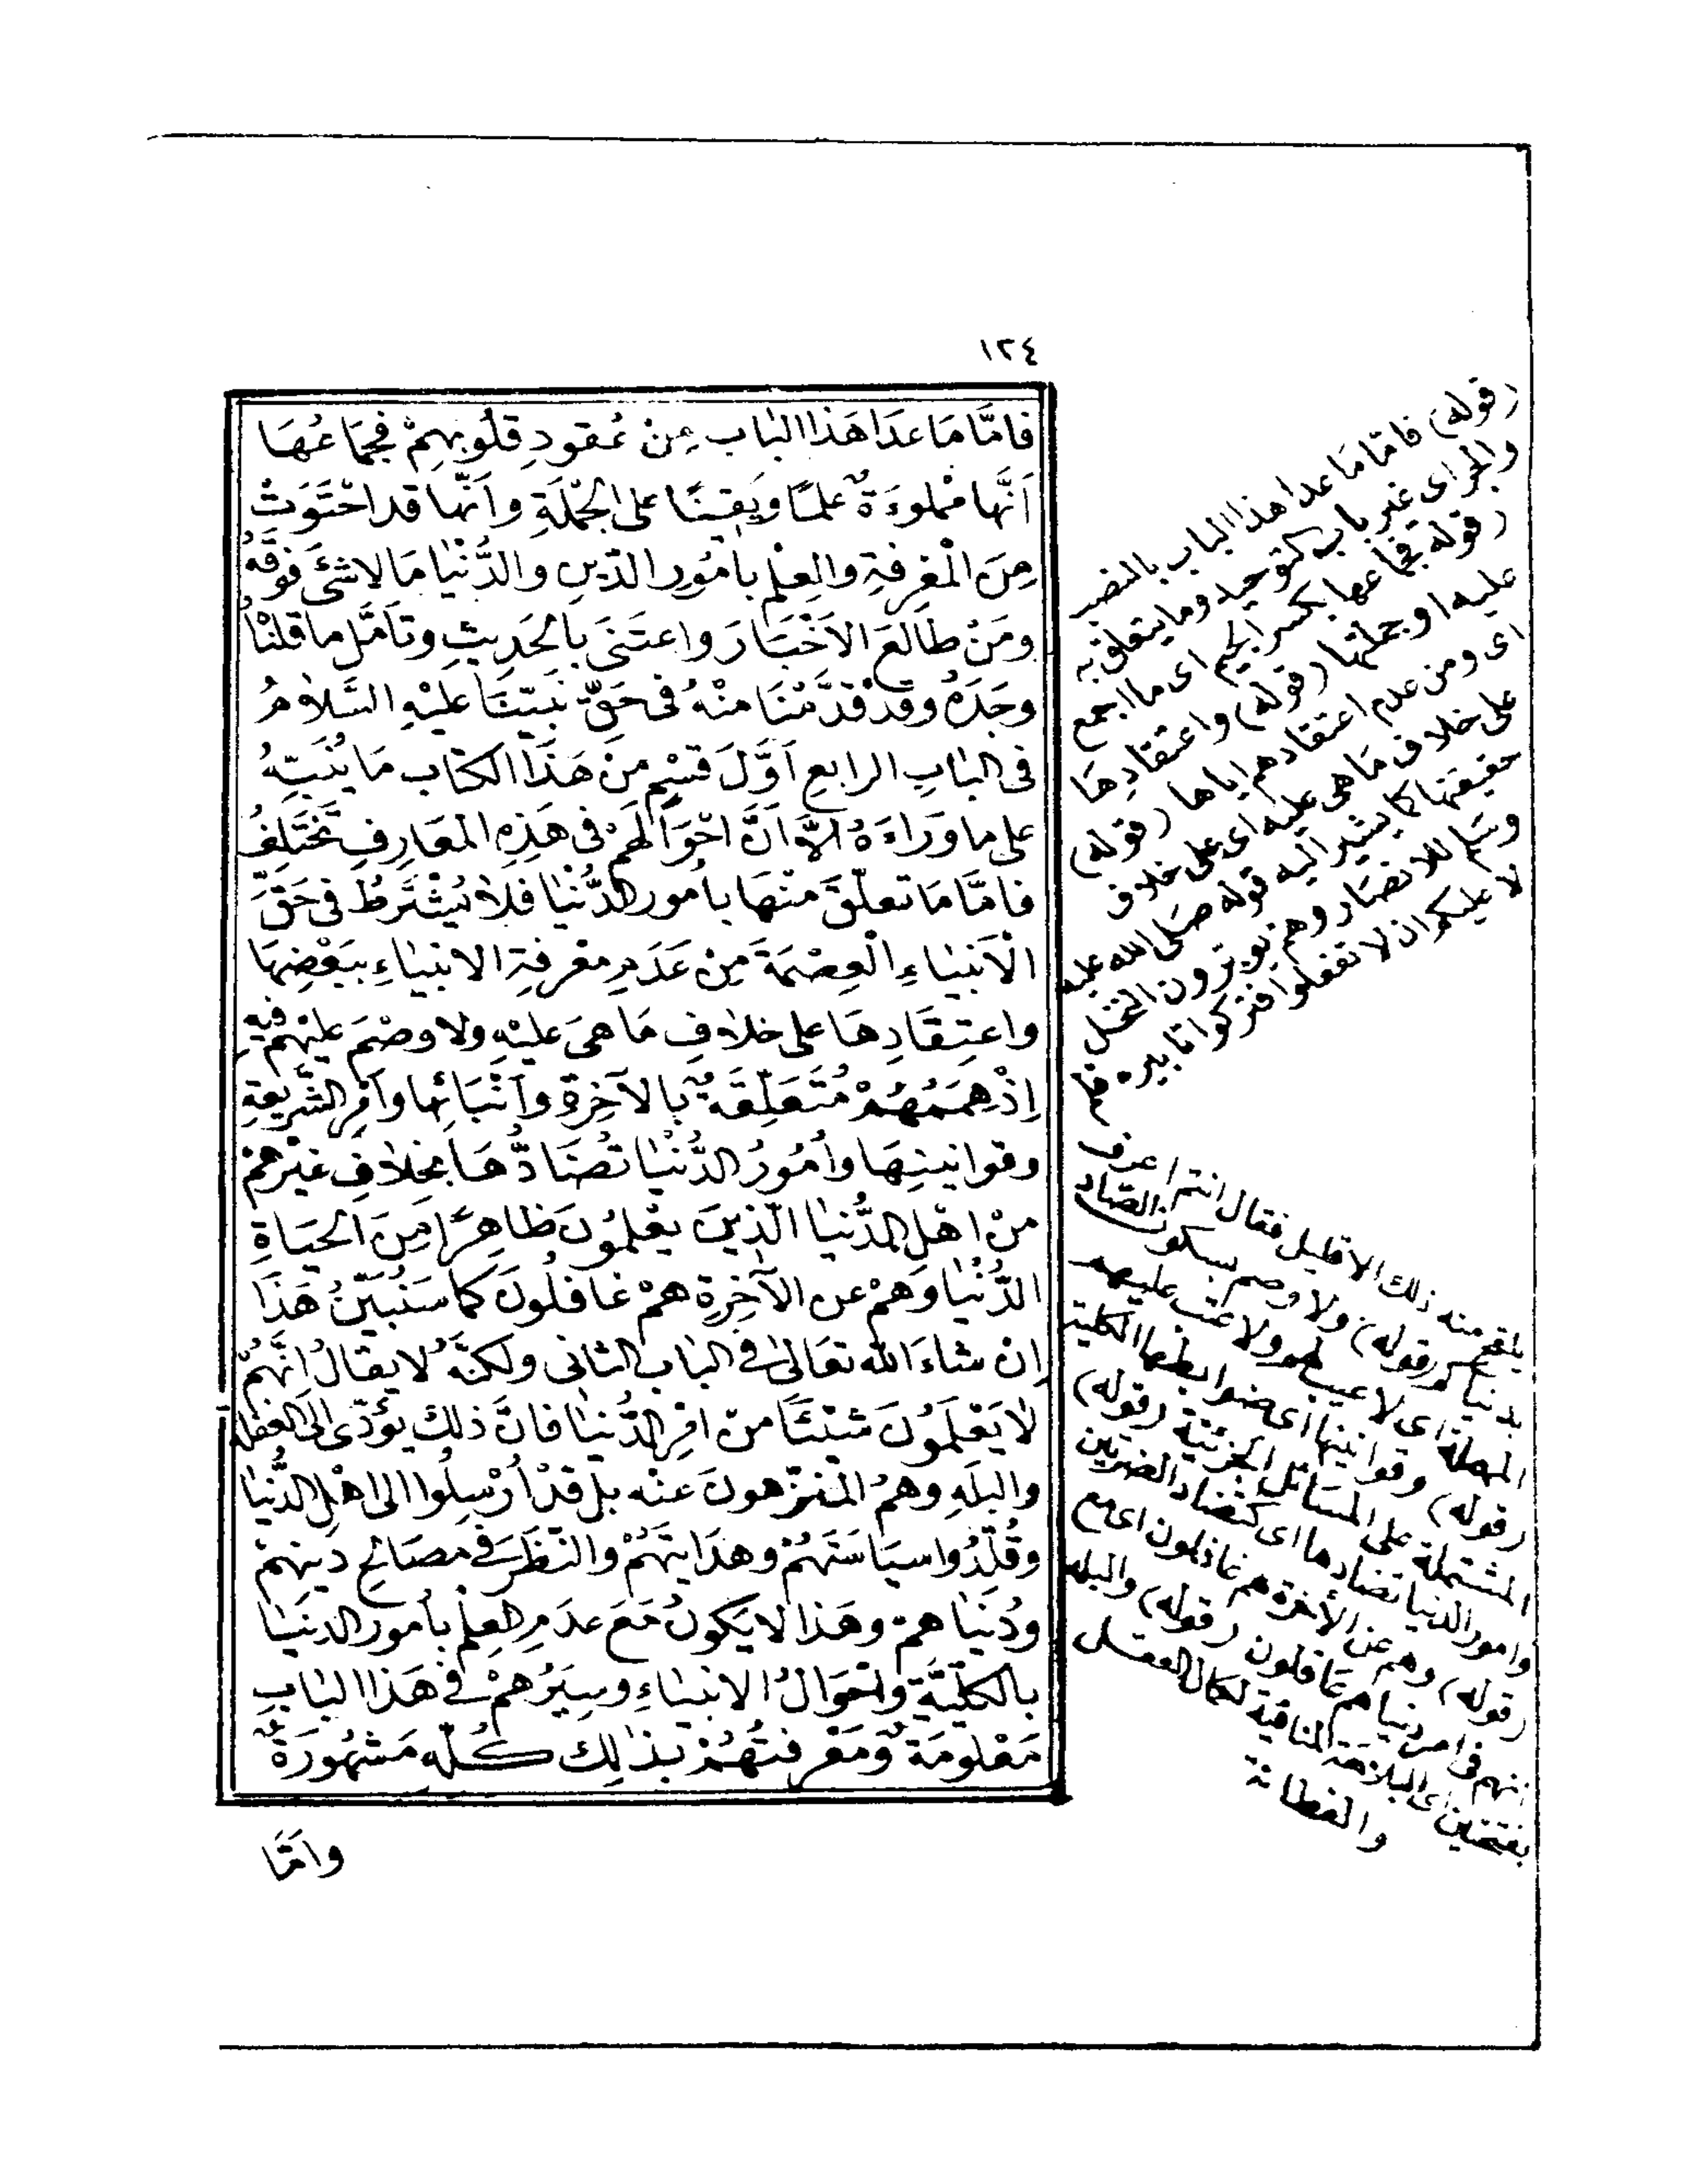 ١٢٤
فَامَّا مَا عَدَا هَذَا الْبَاب مِنْ عُقودِ قلُوبهِمْ فجِمَاعُهَا
اَنَّها مْملوءَةٌ عْلمًا ويَقينًا على الجُمْلَةِ وانَّها قد احْتَوَتْ
مِنَ الْمَعْرفَةِ والعِلْم بأمُورِ الدّينِ والدُّنْيَا مَا لا شَئَ فوقَهُ
ومَنْ طَالَعَ الاَخْبَارَ واعتَنىَ بالحَدِيثِ وتأمَّل ما قلنْاُ
وجَدَهُ وقدْ قدَّمْنَا منْهُ فى حَقّ نَبيّنَا عليْهِ السَّلاٰمُ
فى البَابِ الرابعِ اَوَّلَ قسْمٍ منْ هَذَا الكتاب مَا يُنَبّهُ
على ما وَرَاءَهُ الاَّ اَنَّ احْوَالَهمْ فى هَذِهِ المَعَارِفِ تَخْتَلِفُ
فامَّا مَا تعلّقَ منْهَا بأمورِ الدُّنْيَا فلاٰ يُشْتَرَطُ فى حَقّ
الْاَنبيَاءِ الْعِصْمَةَ مِنْ عَدَمِ معْرفةِ الانبيَاءِ ببَعْضِهَا
واعتِقَادِهَا على خلافِ مَا هىَ عليْهِ ولا وصْمَ عليْهم فيهِ
إذْ هِمَمُهُمْ مُتَعَلّقَةٌ بالآخِرةِ واَنْبَائِها واَمْرِ الشَّريعةِ
وقوانينِهَا واُمُورُ الدُّنْيَا تُضَادُّهَا بخلافِ غيْرِهمْ
منْ اهْلِ الدُّنيَا الّذينَ يعْلمُونَ ظاهِرًا مِنَ الحَيَاةِ
الدُّنْيَا وَهمْ عن الاٰخِرَةِ همْ غافلُونَ كما سَنُبَيّنُ هَذَا
إن شاءَ الله تعَالىٰ فى البَاب الثانى ولكنَّهُ لا يقالُ انَّهُمْ
لاٰ يَعْلَمُونَ شيْئًا منْ امْرِ الدُّنيَا فانَّ ذلك يؤَدّى الى الغفلة
والبَلَهِ وهمُ المنزّهونَ عنْه بلْ قدْ اُرْسِلُوا الى اهْلِ الدُّنْيَا
وقُلّدُوا سيَاسَتَهُمْ وهدَايتَهُمْ والنّظَرَ فى مصَالحِ دينهمْ
ودُنْيَاهمْ وهَذا لا يَكونُ مَعَ عدَمِ العِلْمِ بأمورِ الدنيَا
بالكلّيَّةِ واَحْوَالُ الانبيَاءِ وسِيَرُهمْ فى هَذا البَابِ
مَعْلومَةٌ ومَعْرفتُهُمْ بذٰلِكَ كُلّهِ مَشهُورَةٌ
وامَّا
(قوله) فامّا مَا عدا هذا الباب بالنصب
والجرّ اى غير باب التوحيد وما يتعلق به
(قوله) فجماعها بكسر الجيم اى ما اجمع
عليه او جملتها (قوله) واعتقادِهَا
اى ومن عدم اعتقادهم اياها (قوله)
على خلاف مَا هى عليه اى على خلاف
حقيقتها كما يشير اليه قوله صلى الله عليه
وسلم للانصار وهم يوبّرون النخل
لا عليكم ان لا تفعلوا فتركوا تابيره فلم
يلقح منه ذلك الا قليل فقال انتم اعرف
بدنياكم (قوله) ولا وصم بسكون الصّاد
المهملة اى لا عيب لهم ولا عتب عليهم
(قوله) وقوانينها اى ضوابطها الكلية
المشتملة على المسَائل الجزئية (قوله)
وامور الدنيا تضادها اى كتضاد الضرتين
(قوله) وهم عن الأخرة هم غافلون اى مع
انهم فى امر دنياهم عَاقلون (قوله) والبله
بفتحتين اى البلاهَة المنافية لكمال العقل
والفطانة